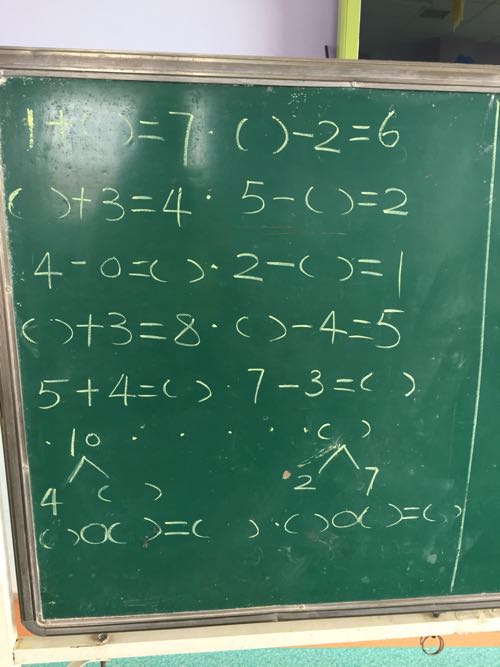 1+( )=7· ( )-2=6
( )+3=4· 5-( )=2
4-0=( )· 2-( )=1
( )+3=8· ( )-4=5
5+4=( )· 7-3=( )
·10 · · · · ·( )
4 ( ) 2 7
( )○( )=( )·( )○( )=( )